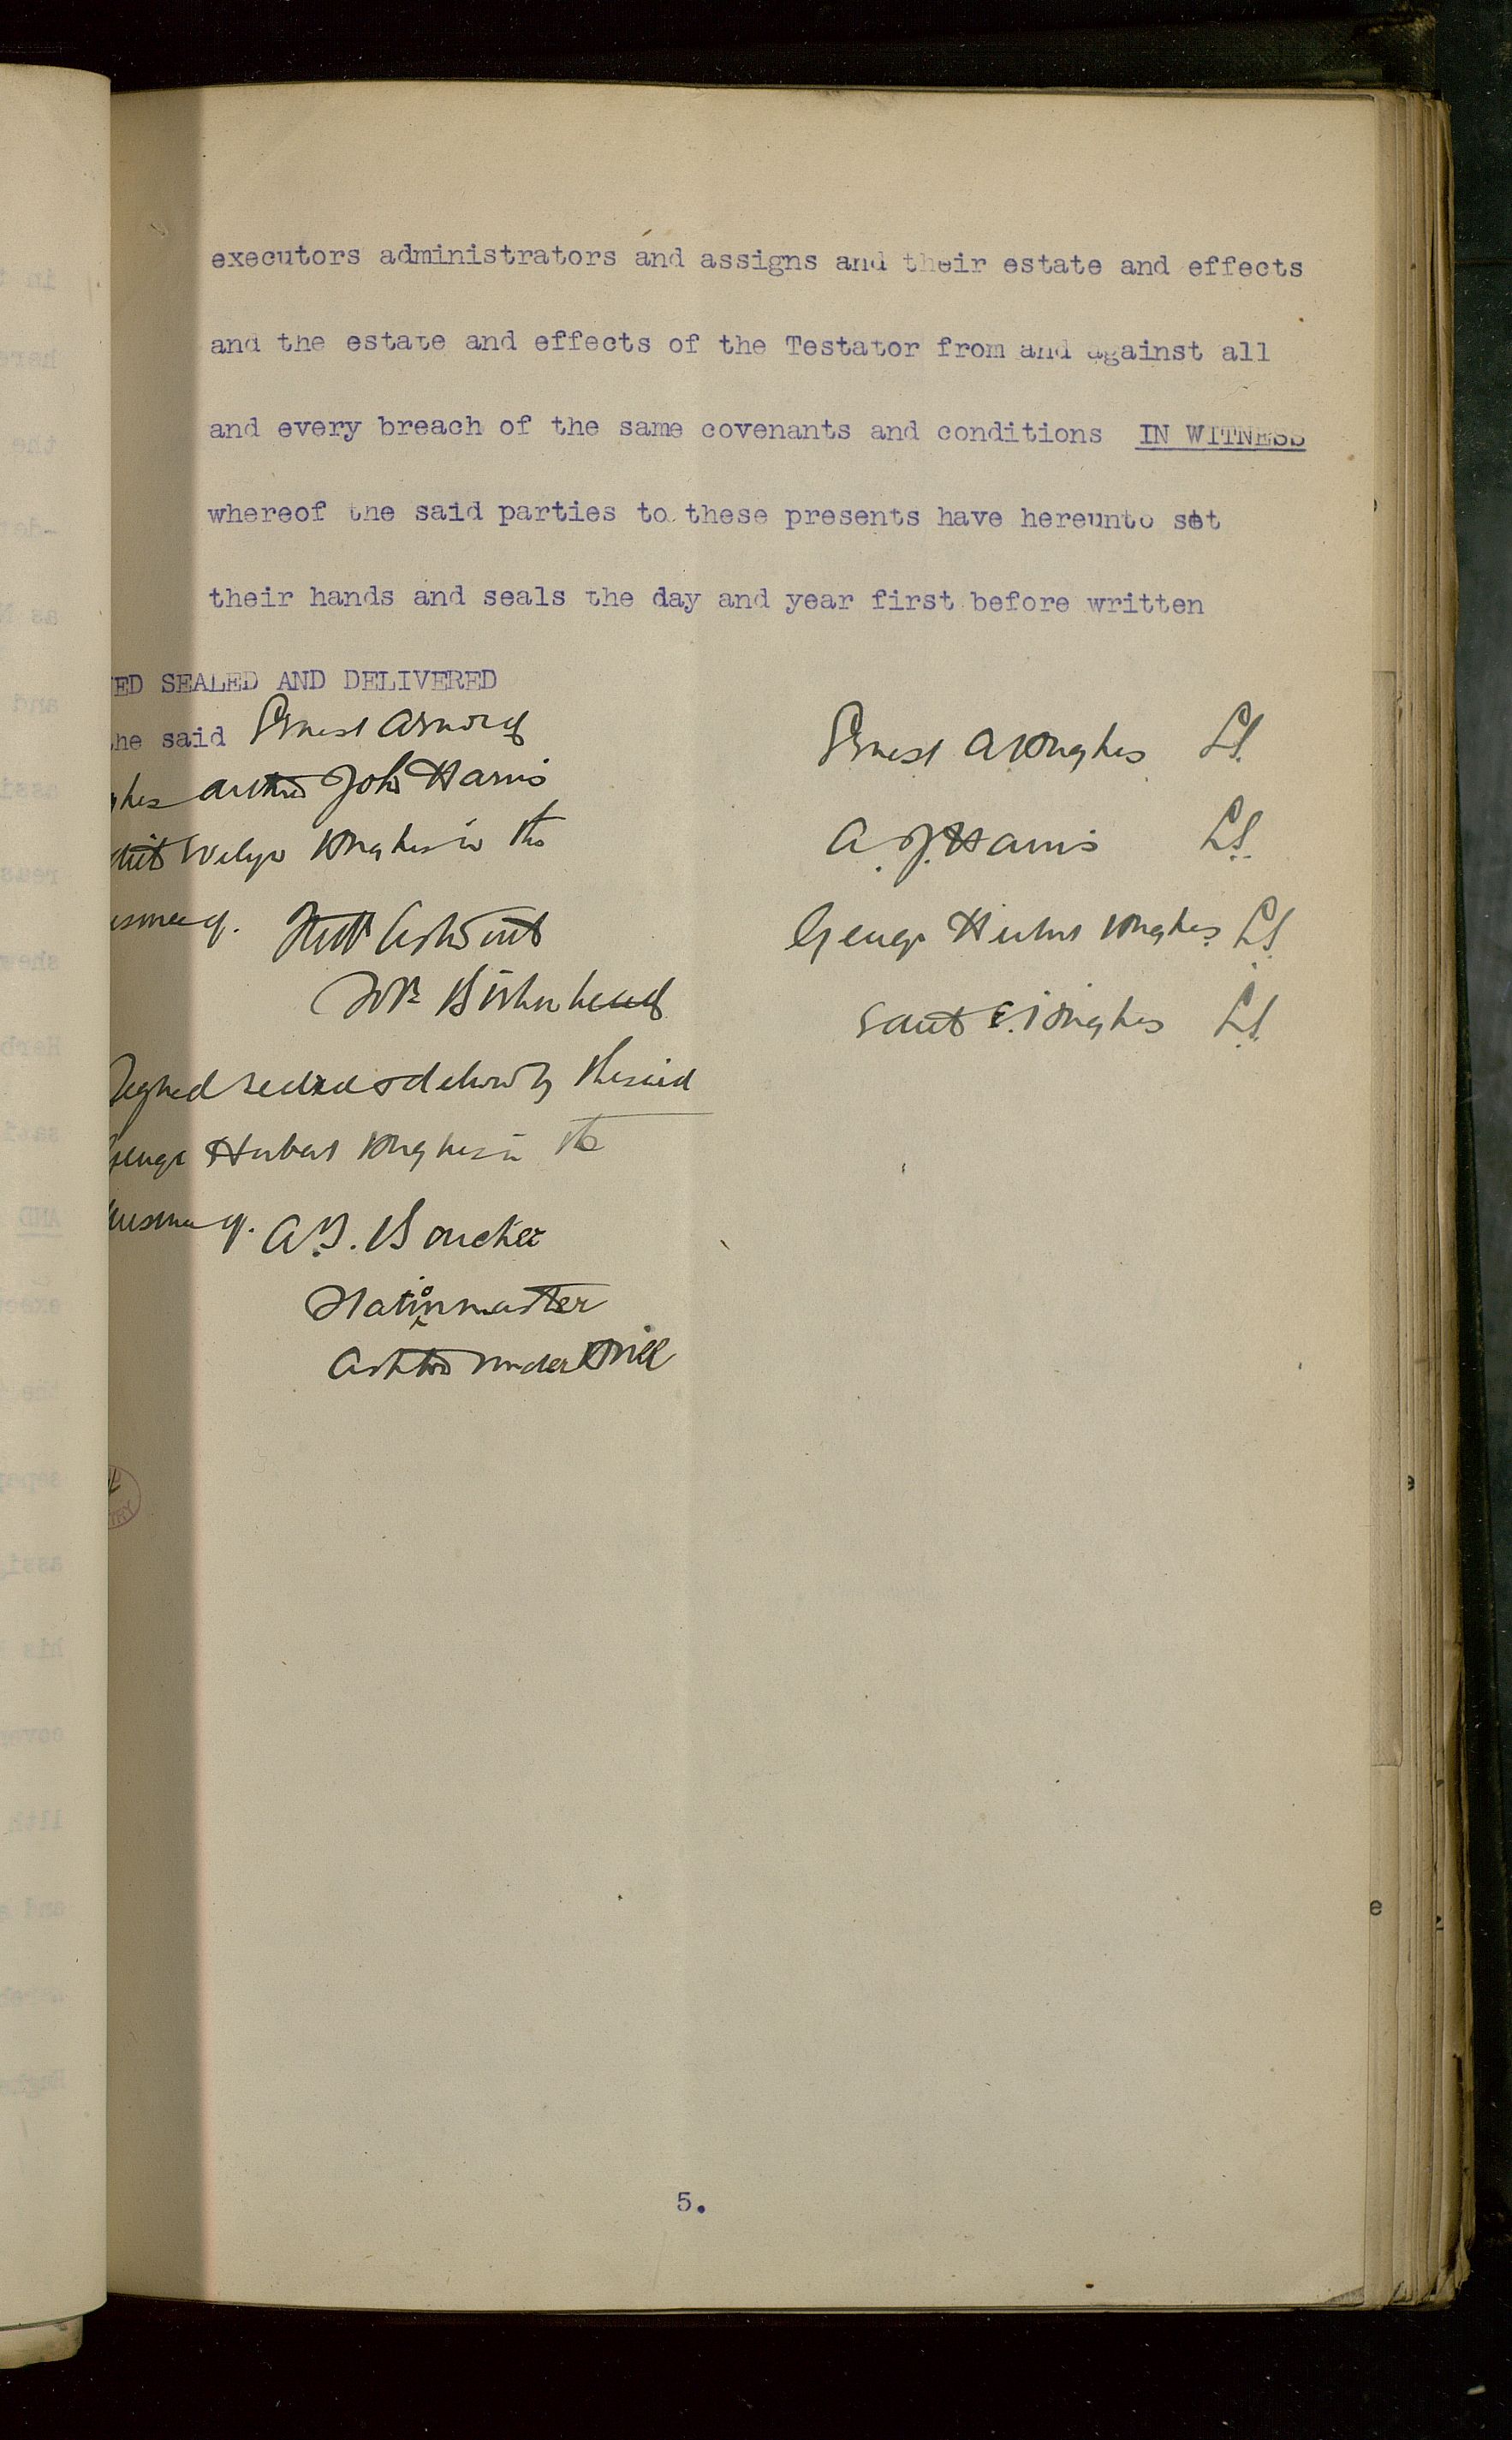 executors administrators and assigns and their estate and effects
and the estate and effects of the Testator from and against all
and every breach of the same covenants and conditions IN WITNESS
whereof the said parties to these presents have hereunto set
their hands and seals the day and year first before written
ED SEALED AND DELIVERED
he said Ernest Arnold
ghes Arthur John Harris
Evelyn Hughes in the
of.
Wm Birkenhead
Signed sealed & delivered by the said
George Herbert Hughes in the
of. A.J. Boucher
Stationmaster
Ashton under Hill
Ernest A Hughes LS.
A. J. Harris L.S.
George Herbert Hughes L.S.
E. Hughes L.S.
5.